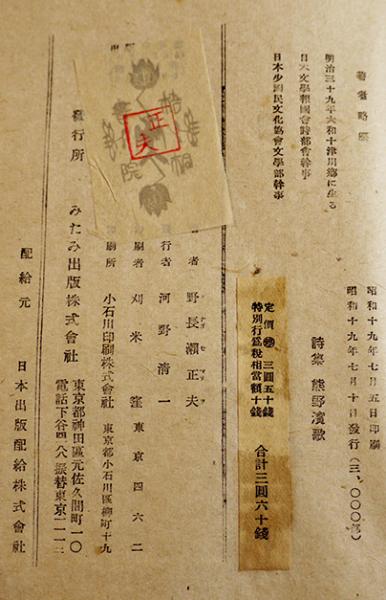 著者略歴
明治三十九年大和十津川郷に生る
日本文學報國會詩部會幹事
日本少國民文化協會文學部幹事
昭和十九年七月五日印刷
昭和十九年七月十日發行(三、〇〇〇部)
詩集 熊野濱歌
定價 三圓五十錢
特別行爲税相當額十錢
合計三圓六十錢
者 野長瀬正夫
行者 河野清一
刷者 刈米窪 東京四六二
刷所 小石川印刷株式會社 東京都小石川區柳町十九
發行所 みたみ出版株式會社 東京都神田區元佐久間町一〇
電話下谷四八 振替東京一一二三
配給元 日本出版配給株式會社
正夫